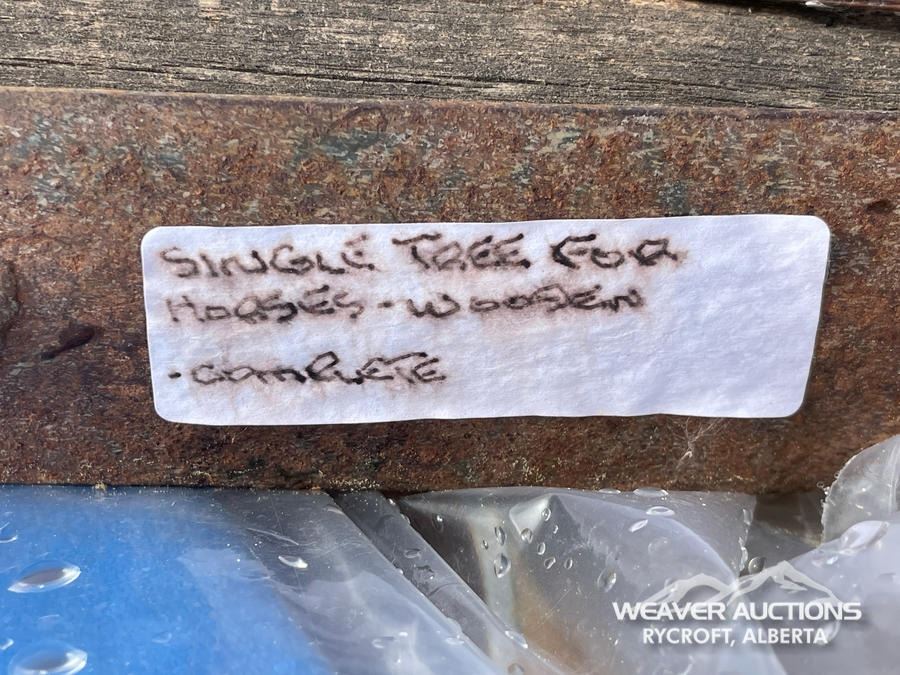 SINGLE TREE FOR
HORSES - WOODEN
- COMPLETE
WEAVER AUCTIONS
RYCROFT, ALBERTA